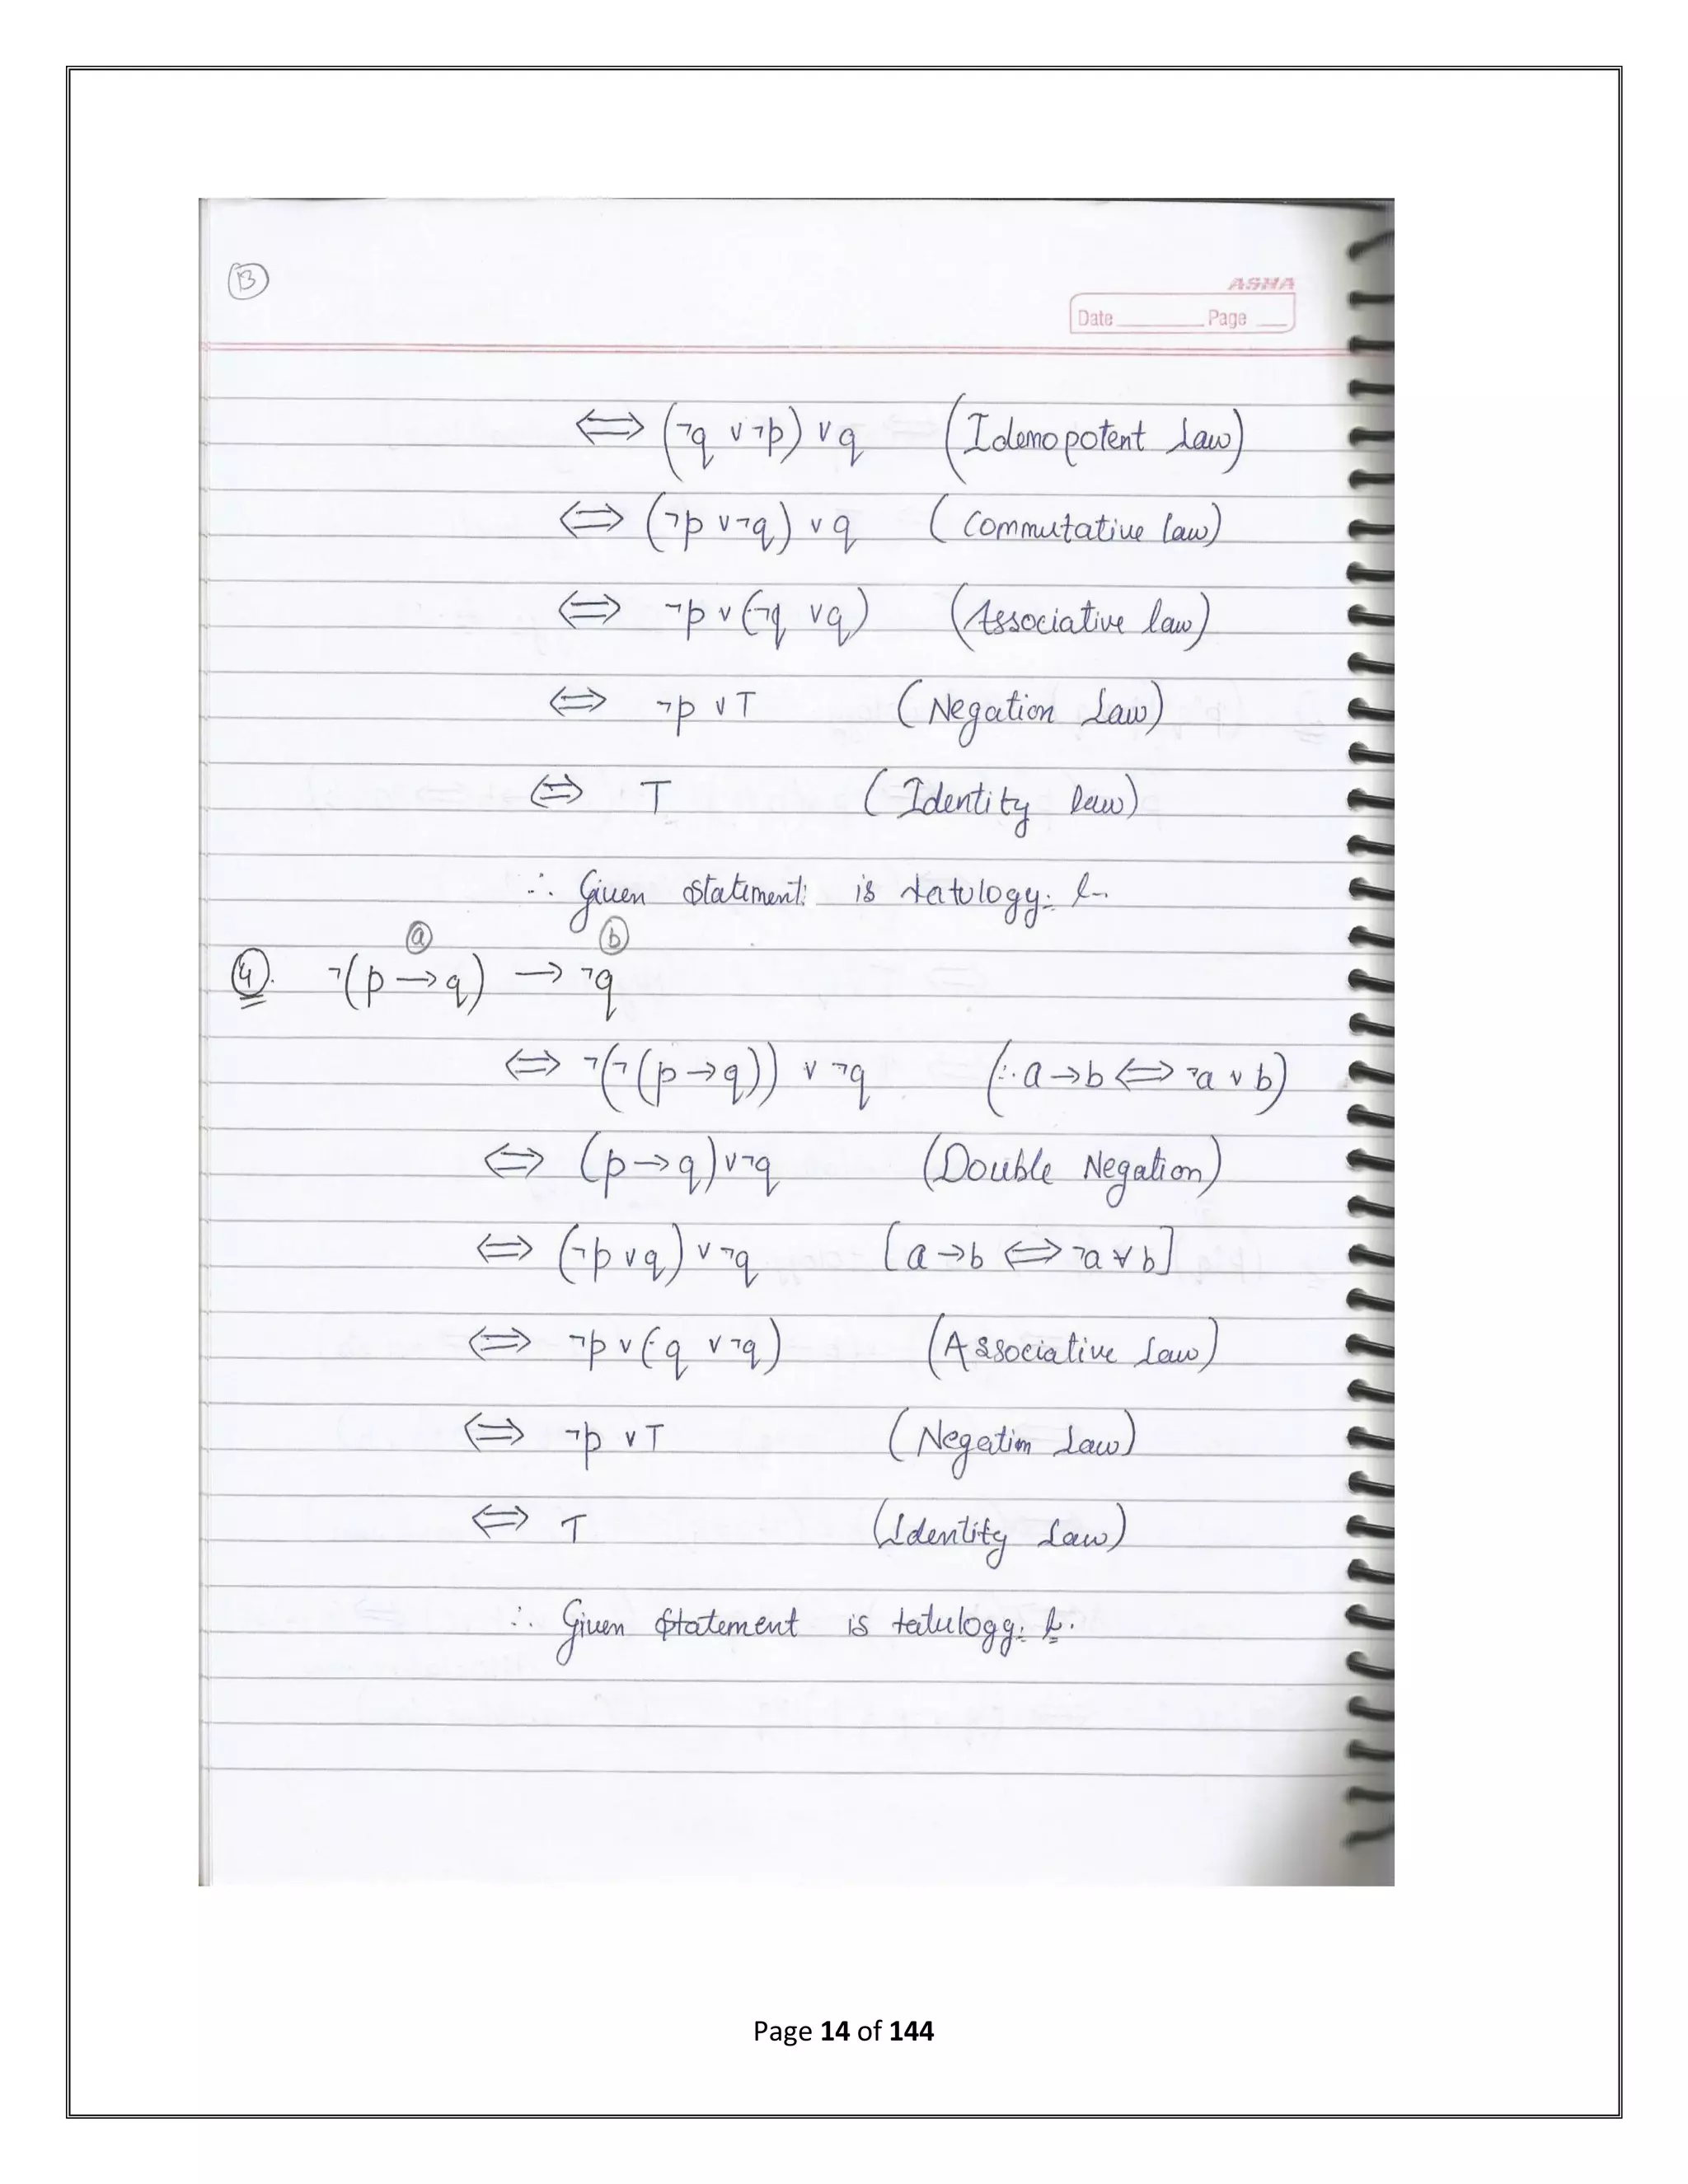 13
ASHA
Date Page
⟺ (¬q ∨ ¬p) ∨ q (Idemopotent Law)
⟺ (¬p ∨ ¬q) ∨ q (Commutative law)
⟺ ¬p ∨ (¬q ∨ q) (Associative law)
⟺ ¬p ∨ T (Negation Law)
⟺ T (Identity law)
∴ Given statement is tatulogy.
a b
4. ¬(p → q) → ¬q
⟺ ¬(¬(p → q)) ∨ ¬q (∵ a → b ⟺ ¬a ∨ b)
⟺ (p → q) ∨ ¬q (Double Negation)
⟺ (¬p ∨ q) ∨ ¬q [a → b ⟺ ¬a ∨ b]
⟺ ¬p ∨ (q ∨ ¬q) (Associative Law)
⟺ ¬p ∨ T (Negation Law)
⟺ T (Identity Law)
∴ Given Statement is tatulogy.
Page 14 of 144